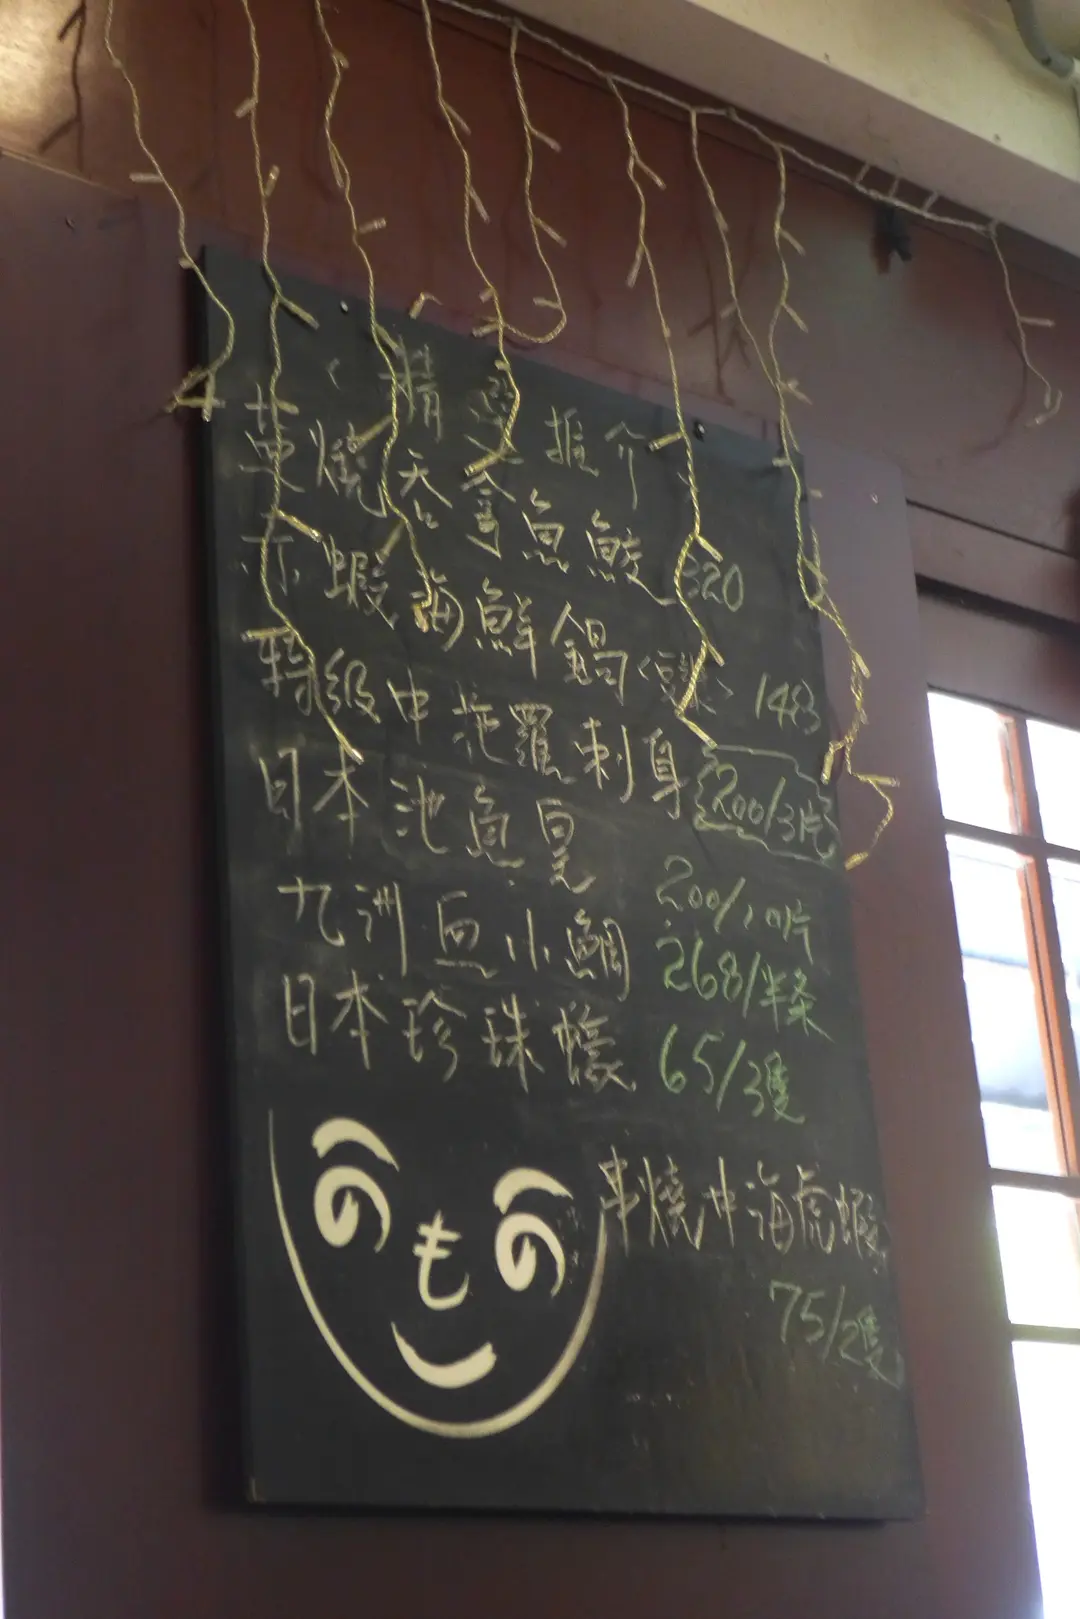 精選推介
燒吞拿魚鮫 320
赤蝦海鮮鍋 148
特級中拖羅刺身 200/3片
日本池魚皇 200/10片
九洲血小鯛 268/半条
日本珍珠蠔 65/3隻
串燒沖海虎蝦
75/2隻
の も の